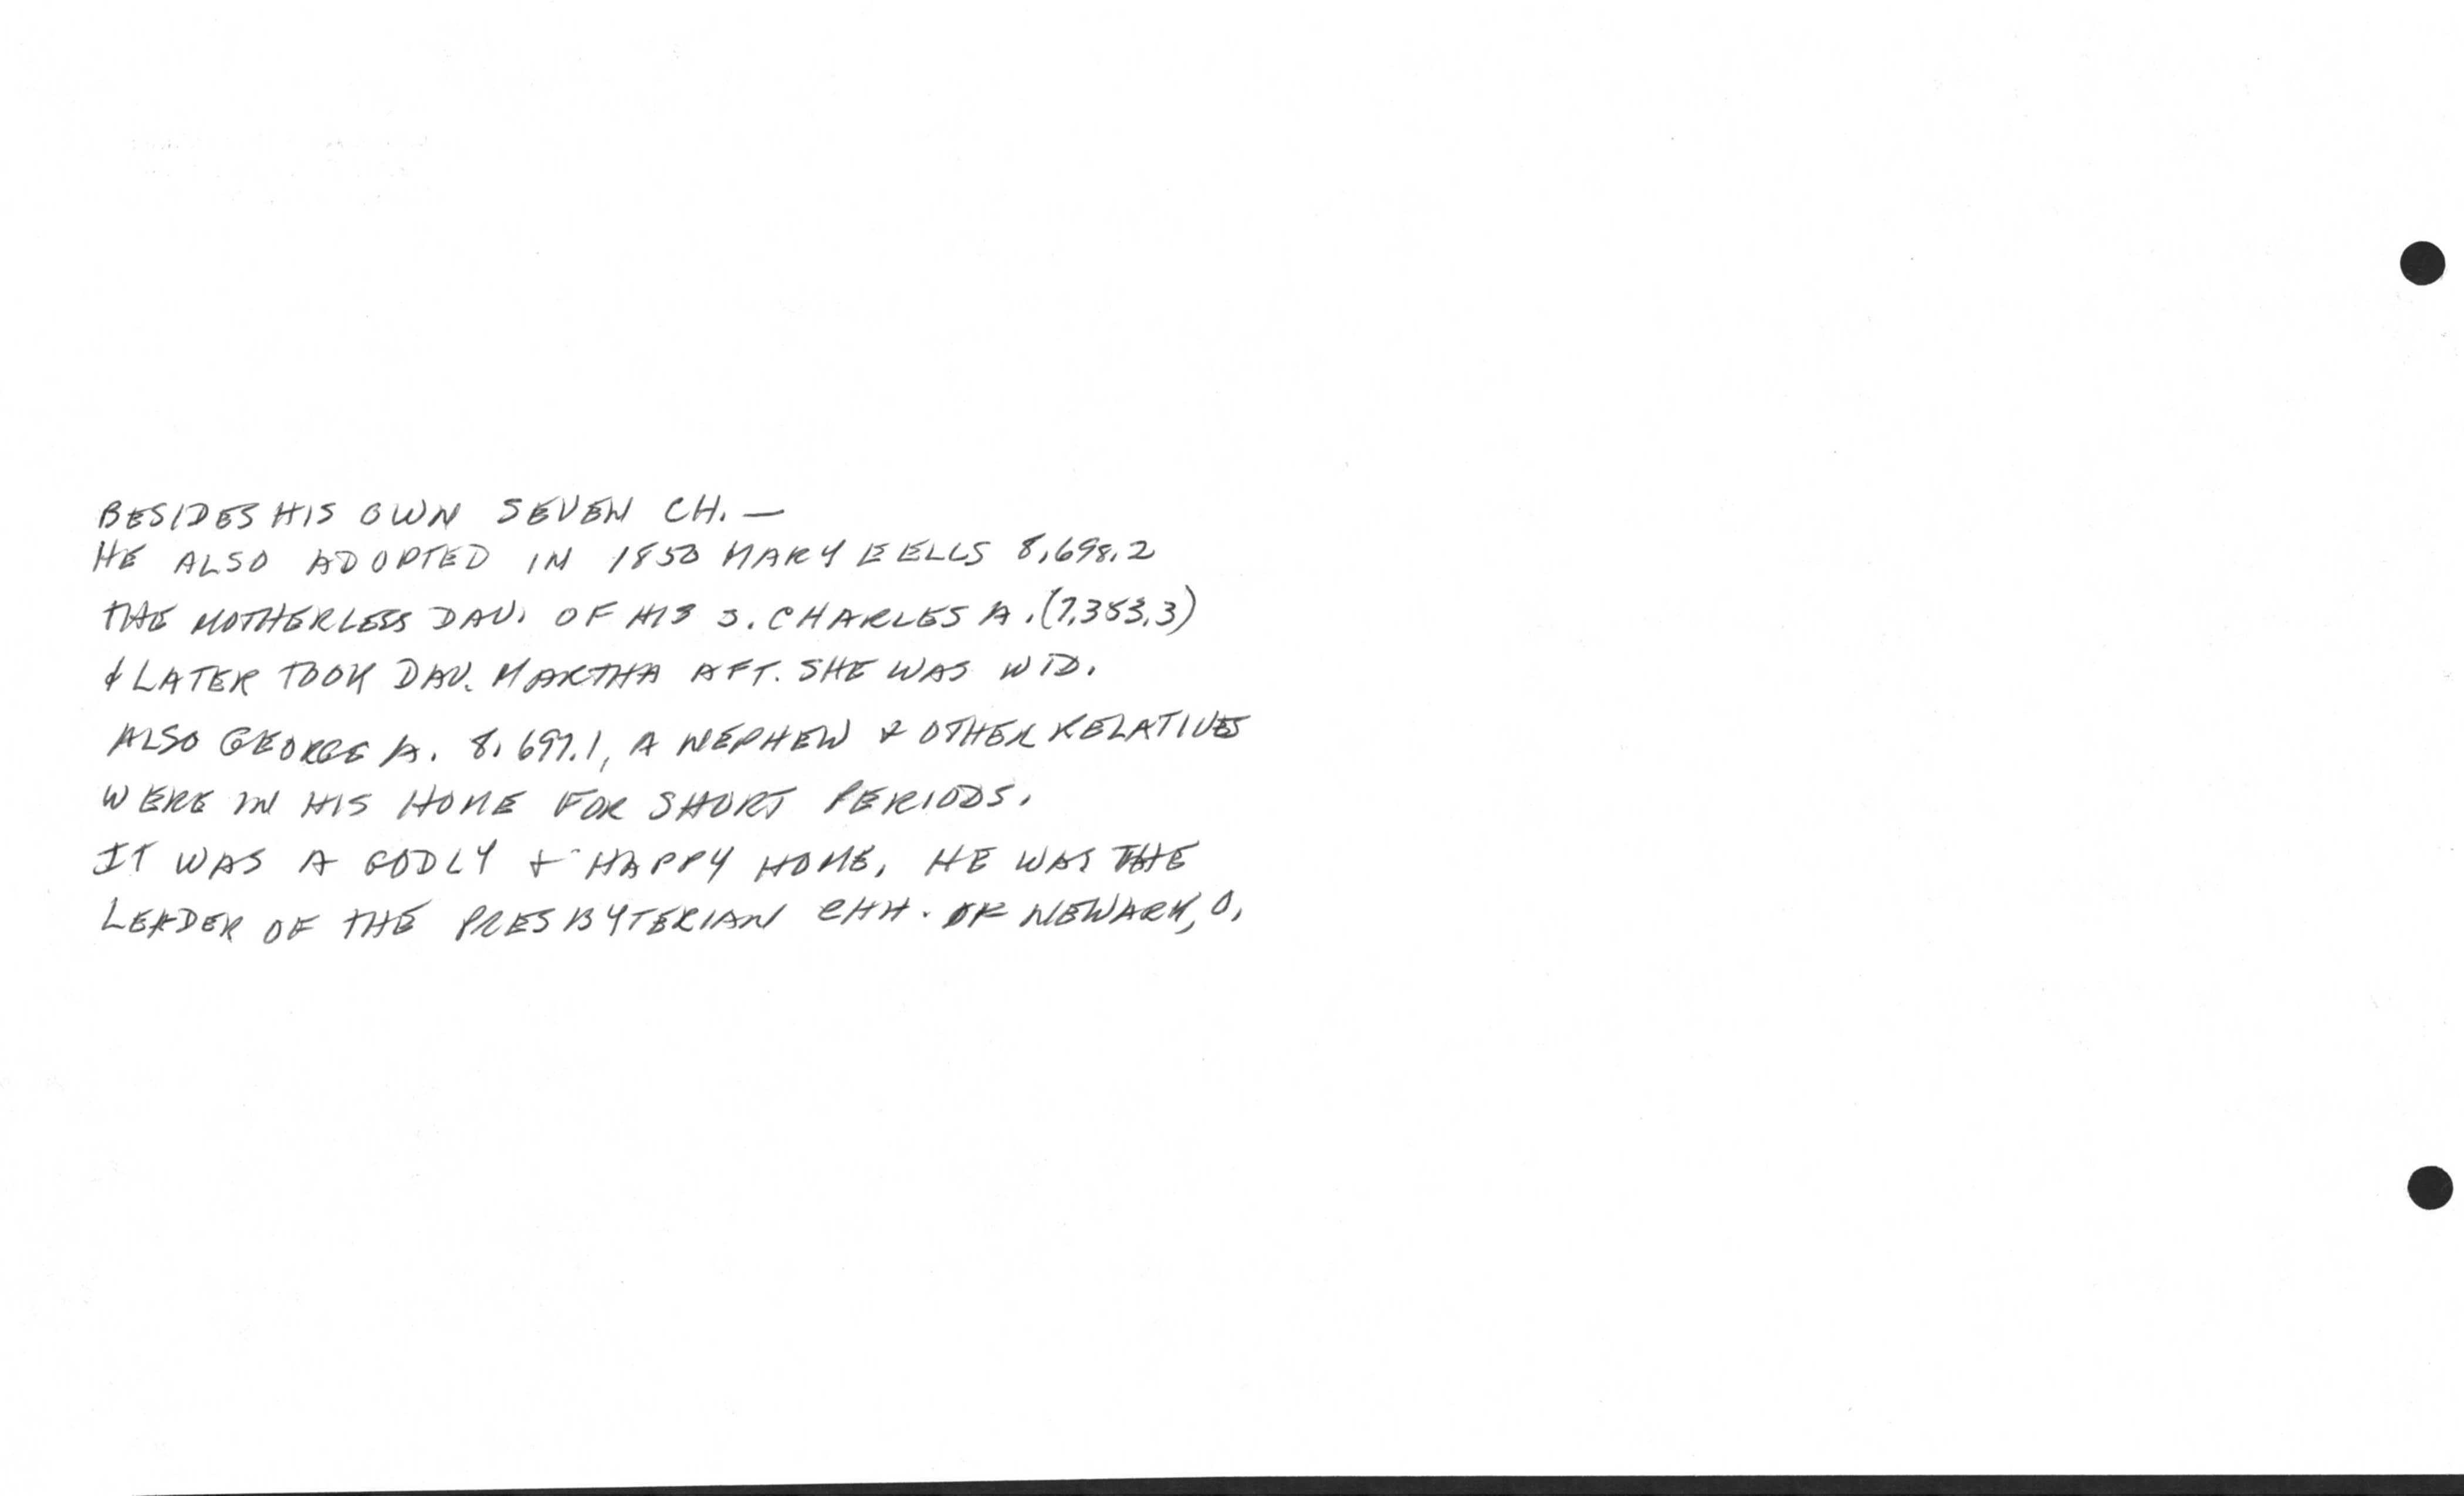 BESIDES HIS OWN SEVEN CH. —
HE ALSO ADOPTED IN 1850 MARY EELLS 8,698.2
THE MOTHERLESS DAU. OF HIS S. CHARLES A. (7,353,3)
& LATER TOOK DAU. MARTHA AFT. SHE WAS WID.
ALSO GEORGE A. 8,697.1, A NEPHEW & OTHER RELATIVES
WERE IN HIS HOME FOR SHORT PERIODS.
IT WAS A GODLY + HAPPY HOME. HE WAS THE
LEADER OF THE PRESBYTERIAN CHH. OF NEWARK, O.